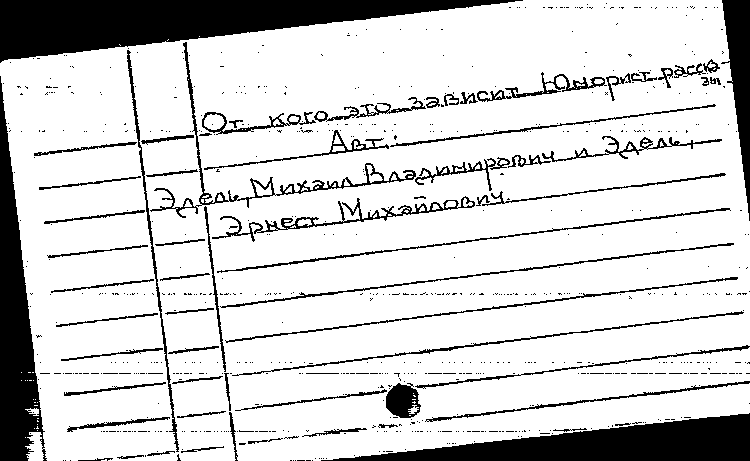 От кого это зависит Юморист. расска
зы.
Авт.:
Эдель, Михаил Владимирович и Эдель,
Эрнест Михайлович.